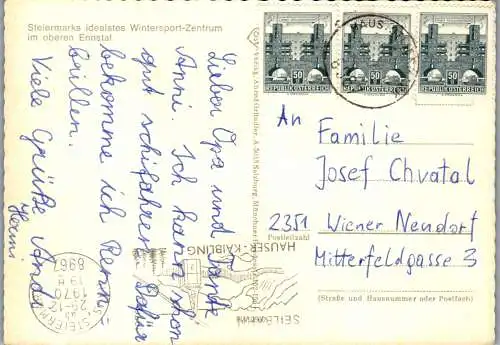 Steiermarks idealstes Wintersport-Zentrum
im oberen Ennstal
Lieber Opa und Tante
Anni. Ich kann schon
gut schifahren. Dafür
bekomme ich Renn-
brillen.
Viele Grüße Andi
Hanni
An
Familie
Josef Chvatal
2351 Wiener Neudorf
Postleitzahl
Mitterfeldgasse 3
(Straße und Hausnummer oder Postfach)
50
REPUBLIK ÖSTERREICH
50
REPUBLIK ÖSTERREICH
50
REPUBLIK ÖSTERREICH
HAUS
HAUSER-KAIBLING
SEILBAHN
8967
1970
STEIERMARK